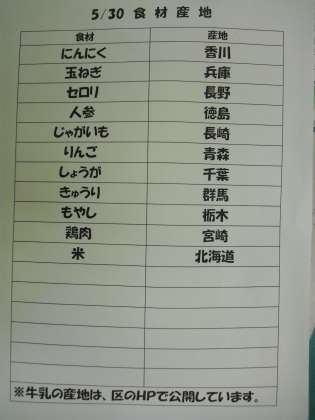 5/30 食材産地
食材 産地
にんにく 香川
玉ねぎ 兵庫
セロリ 長野
人参 徳島
じゃがいも 長崎
りんご 青森
しょうが 千葉
きゅうり 群馬
もやし 栃木
鶏肉 宮崎
米 北海道
※牛乳の産地は、区のHPで公開しています。